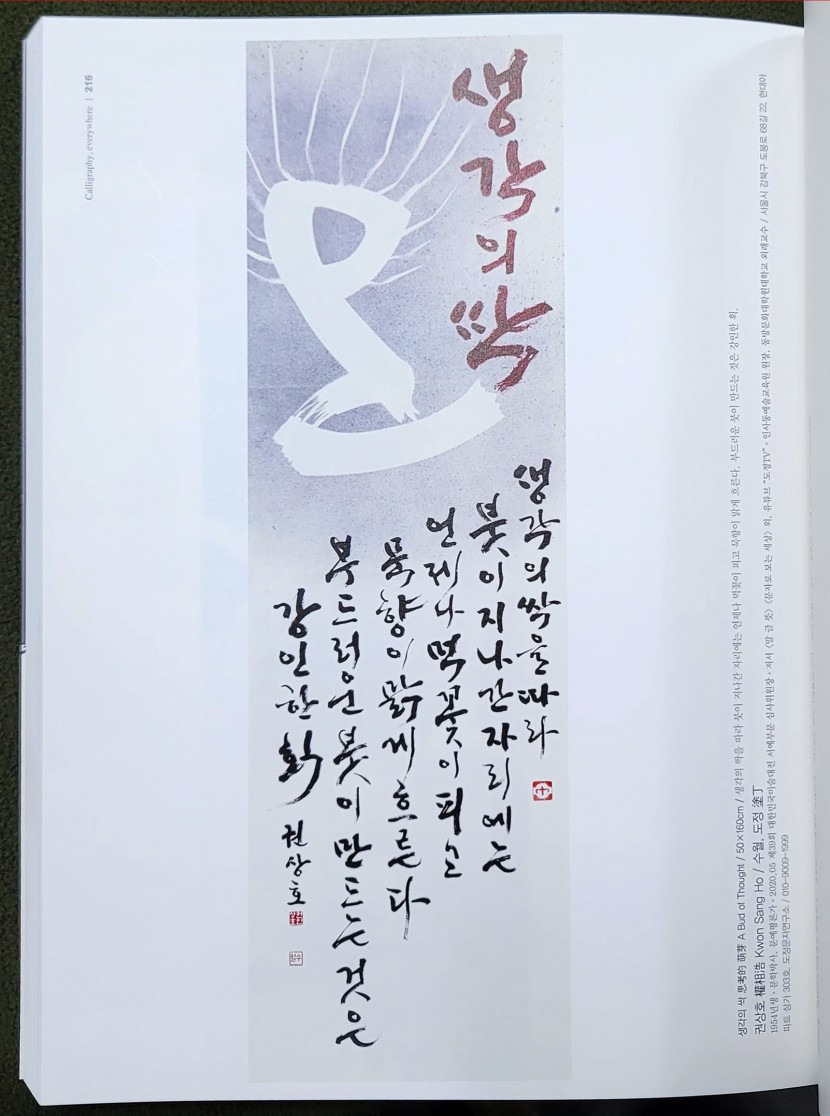 Calligraphy, everywhere | 216
생각의 싹
생각의 싹을 따라
붓이 지나간 자리에는
언제나 먹꽃이 피고
묵향이 맑게 흐른다
부드러운 붓이 만드는 것은
강인한 획
권상호
생각의 싹 思考的 萌芽 A Bud of Thought / 50×160cm / 생각의 싹을 따라 붓이 지나간 자리에는 언제나 먹꽃이 피고 묵향이 맑게 흐른다. 부드러운 붓이 만드는 것은 강인한 획.
권상호 權相浩 Kwon Sang Ho / 수월, 도정 塗丁
1954년생 · 문학박사, 문예평론가 · 2020.05 제39회 대한민국미술대전 서예부문 심사위원장 · 저서 <말 글 뜻> <문자로 보는 세상> 외, 유튜브 "도정TV" · 인사동예술교육원 원장, 동방문화대학원대학교 외래교수 / 서울시 강북구 도봉로 68길 22, 현대아
피트 상가 303호, 도정문자연구소 / 010-9009-1999